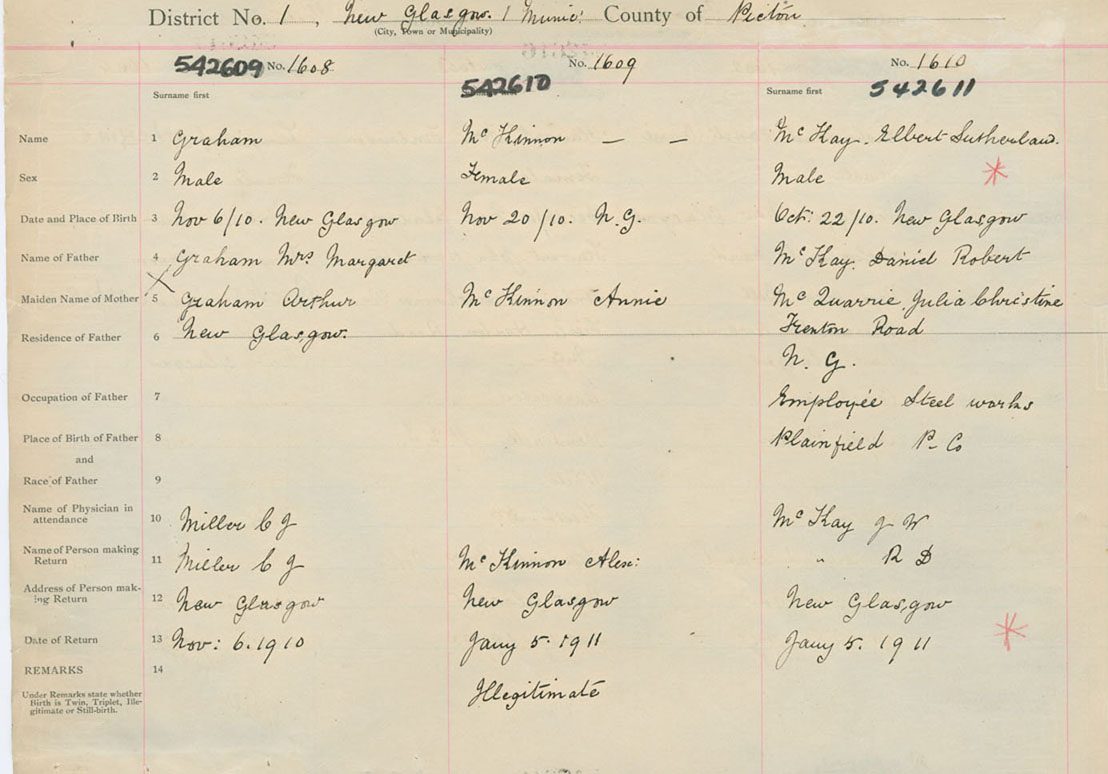 District No. 1, New Glasgow. 1 Munic: County of Pictou
(City, Town or Municipality)
542609 No. 1608 542610 No. 1609 No. 1610 542611
Surname first Surname first
Name 1 Graham McKinnon — — McKay. Elbert Sutherland.
Sex 2 Male Female Male
Date and Place of Birth 3 Nov 6/10. New Glasgow Nov 20/10. N.G. Oct: 22/10. New Glasgow
Name of Father 4 Graham Mrs Margaret McKay. Daniel Robert
Maiden Name of Mother 5 Graham Arthur McKinnon Annie McQuarrie Julia Christine
Residence of Father 6 New Glasgow. Trenton Road
N. G.
Occupation of Father 7 Employée Steel works
Place of Birth of Father 8 Plainfield P. Co
and
Race of Father 9
Name of Physician in
attendance 10 Miller C J McKay J W
Name of Person making
Return 11 Miller C J McKinnon Alex: " R D
Address of Person mak-
ing Return 12 New Glasgow New Glasgow New Glasgow
Date of Return 13 Nov: 6. 1910 Jany 5. 1911 Jany 5. 1911
REMARKS 14
Under Remarks state whether
Birth is Twin, Triplet, Ille-
gitimate or Still-birth. Illegitimate